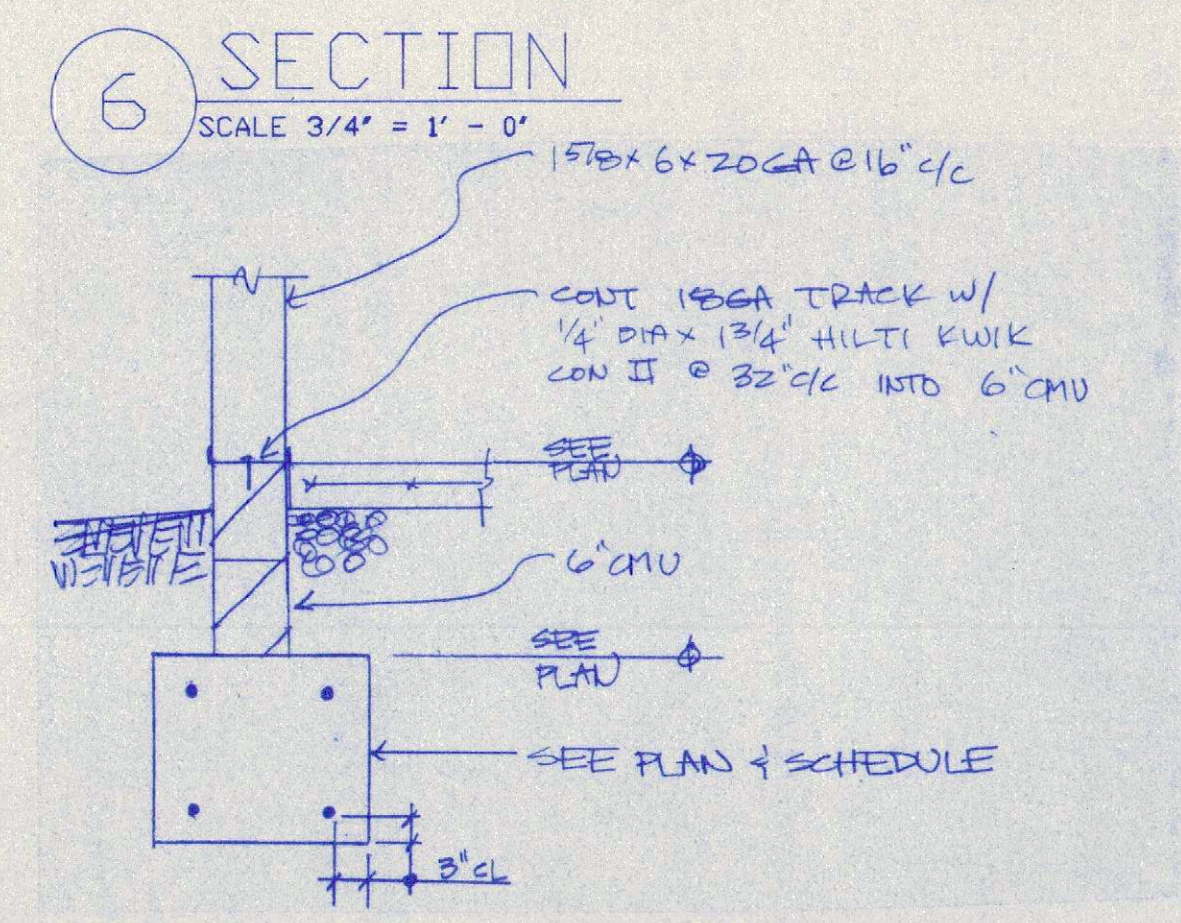 6
SECTION
SCALE 3/4" = 1' - 0"
1 5/8 x 6 x 20GA @ 16" c/c
CONT 18GA TRACK W/
1/4" DIA x 1 3/4" HILTI KWIK
CON II @ 32" c/c INTO 6" CMU
SEE
PLAN
6" CMU
SEE
PLAN
SEE PLAN & SCHEDULE
3" CL